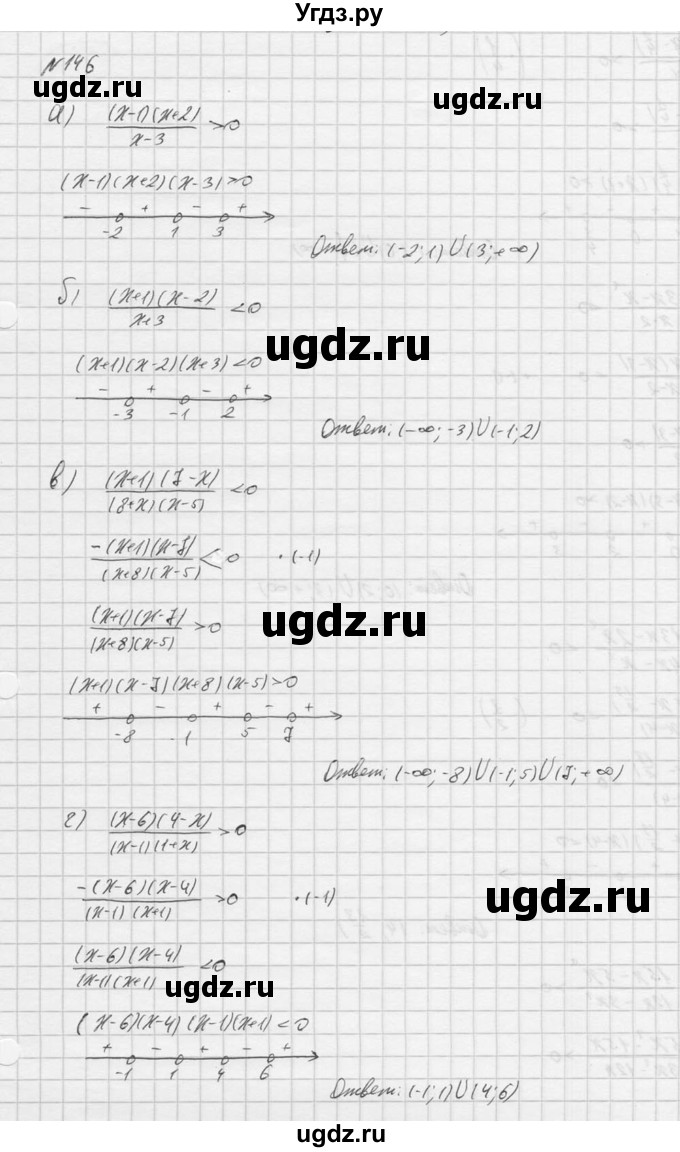 Угдз.ру
N146
ugdz.ru
ugdz.ru
а) (x-1)(x+2)/x-3 >0
(x-1)(x+2)(x-3)>0
- + - +
-2 1 3
Ответ: (-2; 1)∪(3; +∞)
б) (x+1)(x-2)/x+3 <0
ugdz.ru
(x+1)(x-2)(x+3)<0
- + - +
-3 -1 2
Ответ: (-∞; -3)∪(-1; 2)
в) (x+1)(7-x)/(8+x)(x-5) <0
-(x+1)(x-7)/(x+8)(x-5) <0 ·(-1)
(x+1)(x-7)/(x+8)(x-5) >0
ugdz.ru
(x+1)(x-7)(x+8)(x-5)>0
+ - + - +
-8 -1 5 7
Ответ: (-∞; -8)∪(-1; 5)∪(7; +∞)
г) (x-6)(4-x)/(x-1)(1+x) >0
-(x-6)(x-4)/(x-1)(x+1) >0 ·(-1)
ugdz.ru
(x-6)(x-4)/(x-1)(x+1) <0
ugdz.ru
(x-6)(x-4)(x-1)(x+1)<0
+ - + - +
-1 1 4 6
Ответ: (-1; 1)∪(4; 6)
ugdz.ru